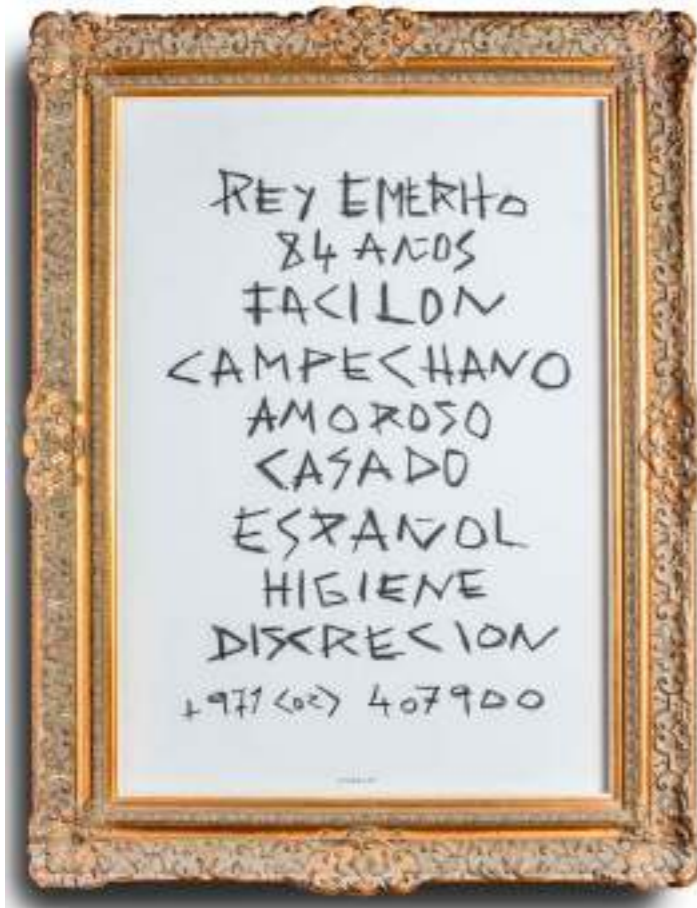 REY EMERITO
84 AÑOS
FACILON
CAMPECHANO
AMOROSO
CASADO
ESPAÑOL
HIGIENE
DISCRECION
+971 (02) 407900